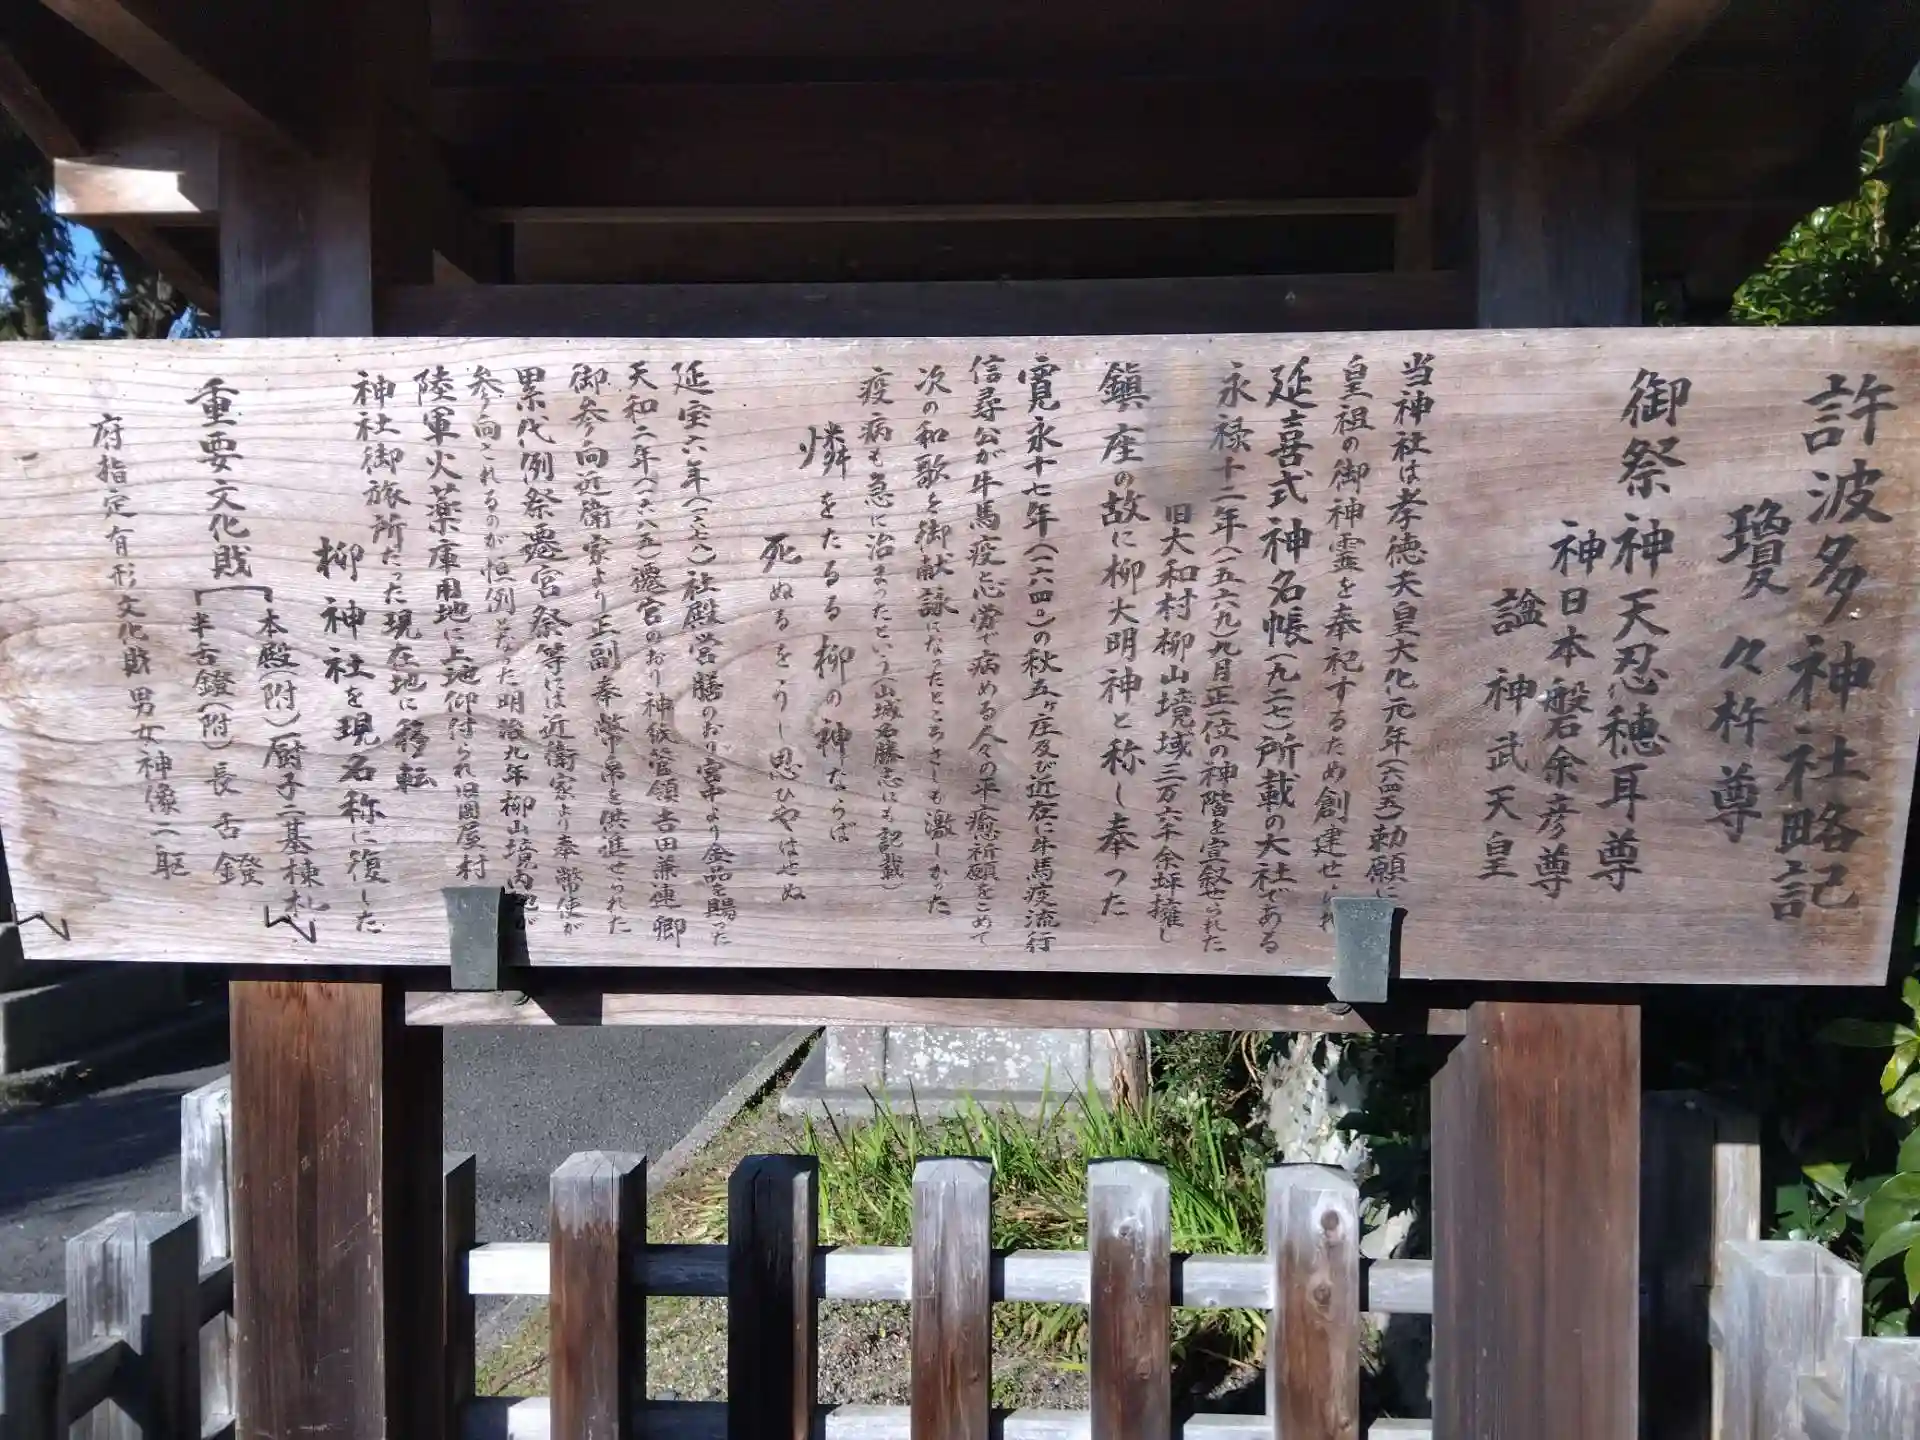 許波多神社略記
瓊々杵尊
御祭神天忍穂耳尊
神日本磐余彦尊
諡神武天皇
当神社は孝徳天皇大化元年(六四五)勅願に
皇祖の御神霊を奉祀するため創建せられ
延喜式神名帳(九二七)所載の大社である
永禄十二年(一五六九)九月正一位の神階を宣叙せられた
旧大和村柳山境域三万六千余坪擁し
鎮座の故に柳大明神と称し奉つた
寛永十七年(一六四〇)の秋五ヶ庄及び近在に牛馬疫流行
信尋公が牛馬疫と心労で病める人々の平癒祈願をこめて
次の和歌を御献詠になったところさしも激しかった
疫病も急に治まったという(山城名勝志にも記載)
憐をたるる柳の神ならば
死ぬるをうし思ひやはせぬ
延宝六年(一六七八)社殿営膳のおり宮中より金品を賜った
天和二年(一六八五)遷宮のおり神紙管領吉田兼連卿
御参向近衛家より正副奉幣帛を供進せられた
累代例祭遷宮祭等には近衛家より奉幣使が
参向されるのが恒例となった明治九年柳山境内地が
陸軍火薬庫用地に上地仰付られ旧岡屋村
神社御旅所だった現在地に移転
柳神社を現名称に復した
重要文化財 本殿(附)厨子二基棟札
半舌鐙(附)長舌鐙
府指定有形文化財男女神像二躯